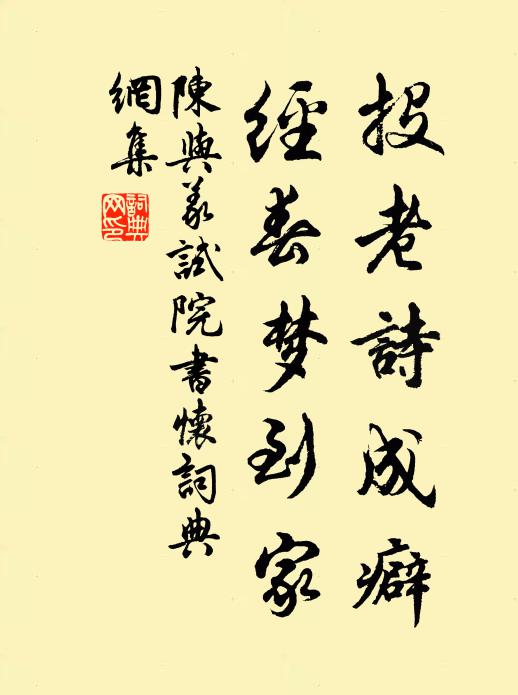 投老詩成癖
經春梦到家
陳與義試院書懷詞典
網集
詞典网印